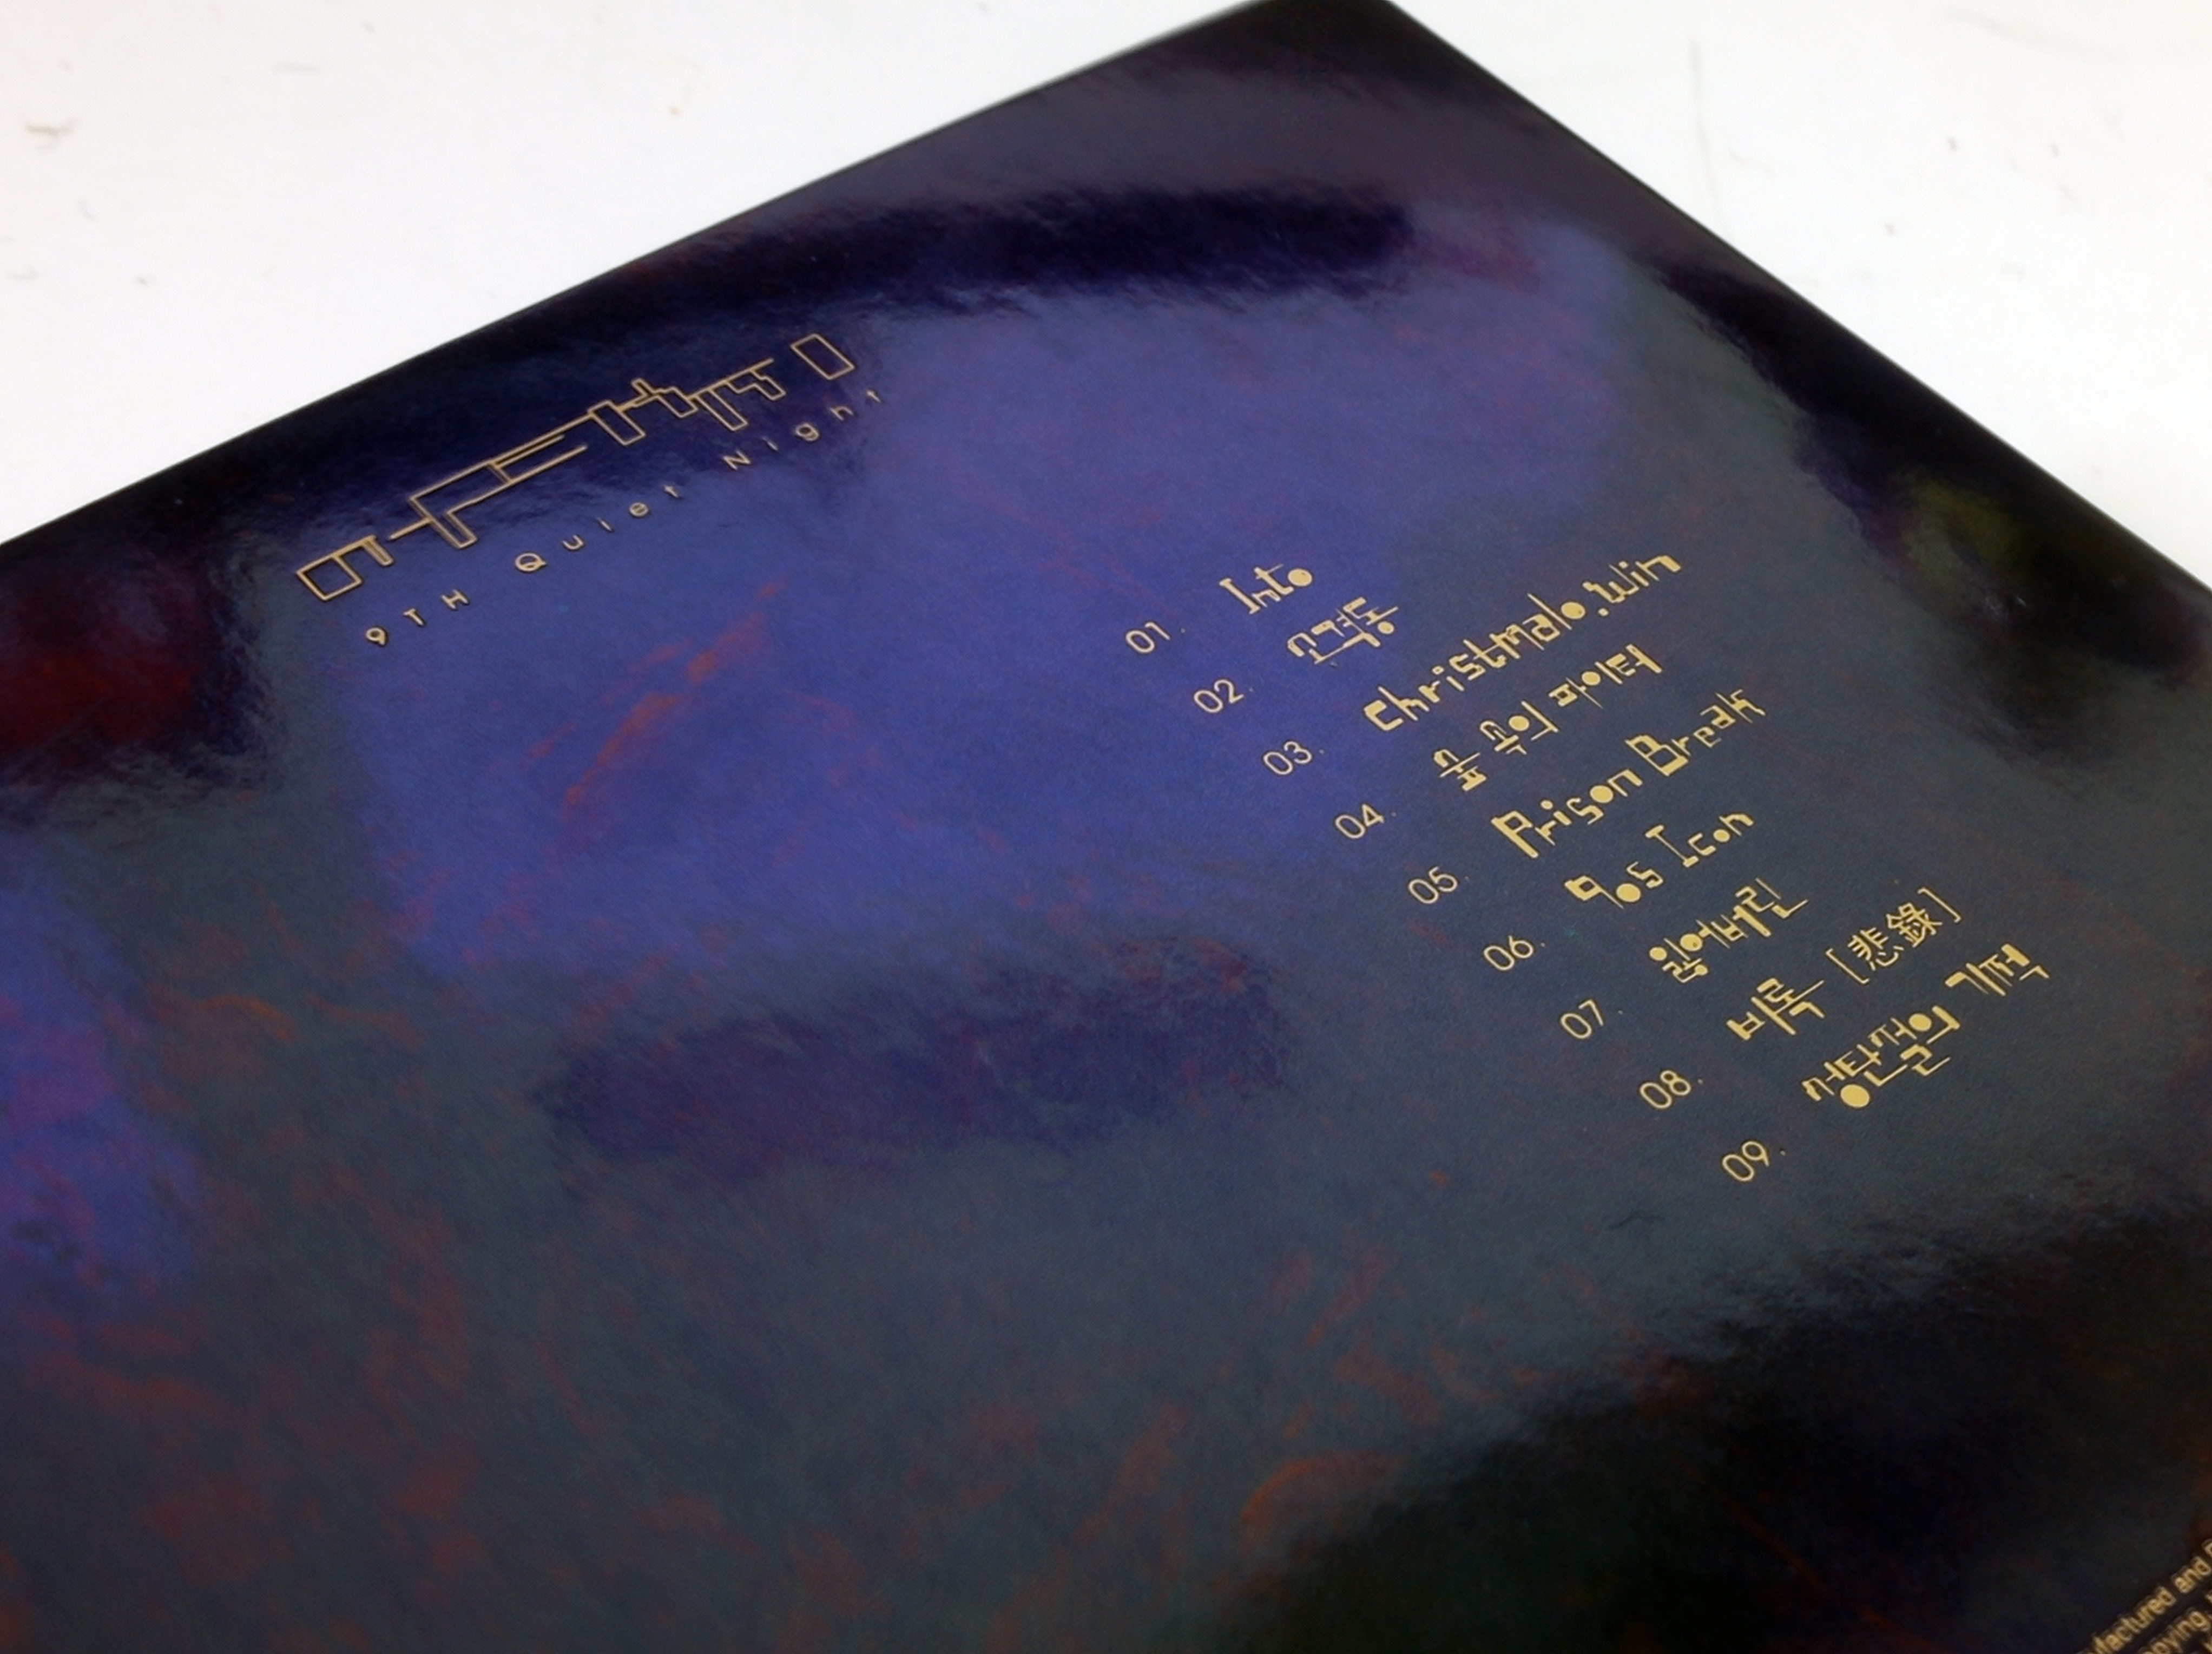 9TH Quiet Night
01. Into
02. 소격동
03. Christmalo.win
04. 숲 속의 파이터
05. Prison Break
06. 90s Icon
07. 잃어버린
08. 비록 [悲錄]
09. 성탄절의 기적
and